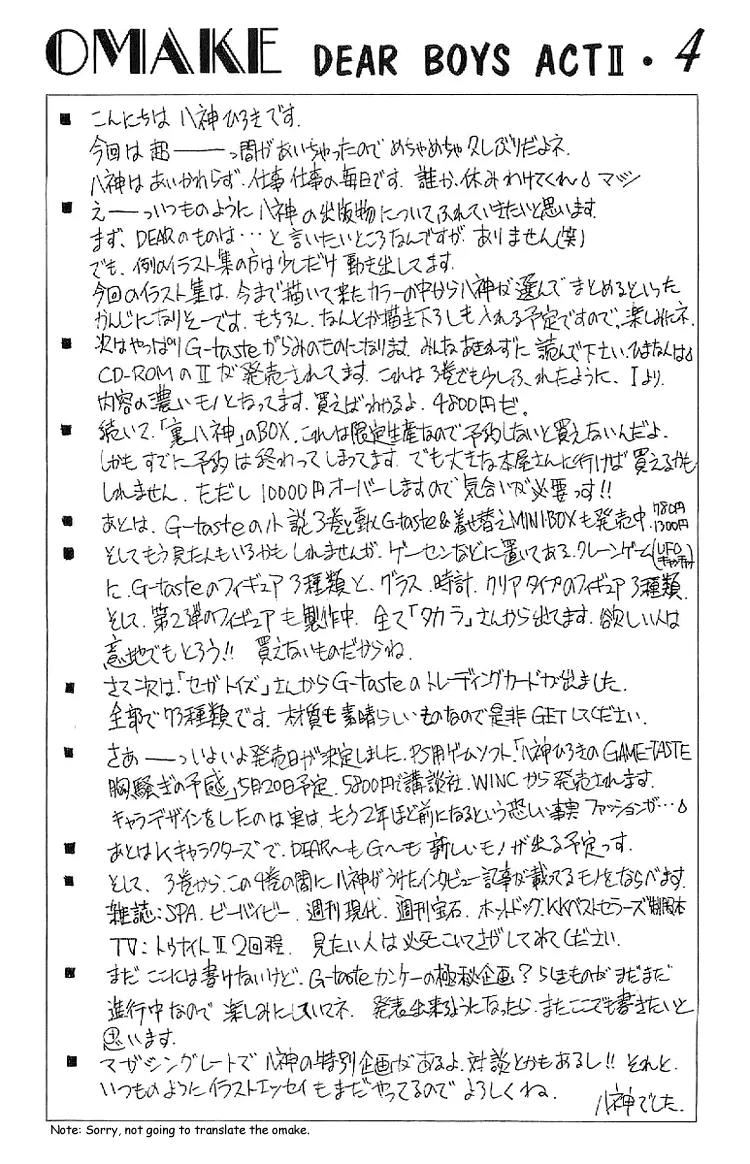 OMAKE DEAR BOYS ACTⅡ・4
■ こんにちは 八神ひろきです.
今回は超―――っ間があいちゃったので めちゃめちゃ久しぶりだよネ.
八神はあいかわらず.仕事仕事の毎日です. 誰か.休みわけてくれ マジ
■ え――っいつものように 八神の出版物についてふれていきたいと思います.
まず、DEARのものは…と言いたいところなんですが. ありません(笑)
でも、例のイラスト集の方は少しだけ 動き出してます.
今回のイラスト集は、今まで描いて来たカラーの中から八神が選んで まとめるといった
かんじになりそーです. もちろん. なんとか描き下ろしも入れる予定ですので、楽しみにネ.
■ 次はやっぱりG-tasteがらみのものになります. みんなあきれずに 読んで下さい.ひまなんは
CD-ROMのⅡが発売されてます. これは3巻でも少しふれたように、Ⅰより.
内容の濃いモノとなってます. 買えばわかるよ. 4800円ゼ.
■ 続いて.「裏八神」のBOX.これは限定生産なので予約しないと買えないんだよ.
しかもすでに予約は終わってしまってます. でも大きな本屋さんに行けば 買えるかも
しれません. ただし10000円オーバーしますので 気合いが必要っす!!
■ あとは、G-tasteの小説3巻と動くG-taste&着せ替えMINIBOXも発売中 780円 1300円
■ そしてもう見た人もいるかもしれませんが. ゲーセンなどに置いてある.クレーンゲーム(UFOキャッチャー)
に.G-tasteのフィギュア3種類と.グラス.時計. クリアタイプのフィギュア3種類.
そして、第2弾のフィギュアも製作中. 全て「タカラ」さんから出てます. 欲しい人は
意地でもとろう!! 買えないものだからね.
■ さて次は.「セガトイズ」さんからG-tasteのトレーディングカードが出ました.
全部で73種類です. 材質も素晴らしいものなので是非GETしてください.
■ さあ――っいよいよ発売日が決定しました. PS用ゲームソフト.「八神ひろきのGAME-TASTE
胸騒ぎの予感」5月20日予定. 5800円で講談社. WINCから発売されます.
キャラデザインをしたのは実は、もう2年ほど前になるという恐しい事実 ファッションが…
■ あとはKキャラクターズで. DEAR〜もG〜も 新しいモノが出る予定っす.
■ そして、3巻から.この4巻の間に八神がうけたインタビュー記事が載ってるモノをならべます.
雑誌:SPA. ビービーイビー. 週刊現代. 週刊宝石. ホットドッグ.KKベストセラーズ
TV:トゥナイトⅡ2回程. 見たい人は必死こいてさがしてみてください.
■ まだここには書けないけど. G-tasteカンケーの極秘企画?らしきものがまだまだ
進行中なので 楽しみにしていてネ. 発表出来るようになったら.またここでも書きたいと
思います.
■ マガジングレートで八神の特別企画があるよ.対談とかもあるし!! それと.
いつものようにイラストエッセイもまだやってるので よろしくね.
八神でした.
Note: Sorry, not going to translate the omake.